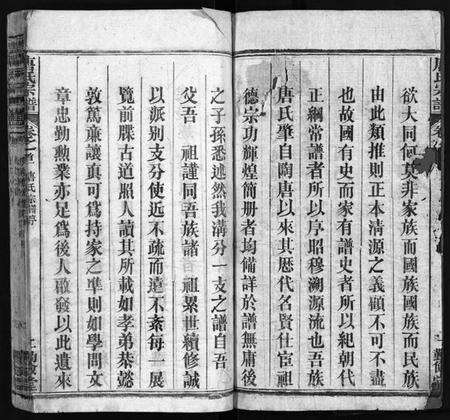 唐氏宗譜
欲大同何莫非家族而國族國族而民族
由此類推則正本清源之義顧不可不盡
也故國有史而家有譜史者所以紀朝代
正綱常譜者所以序昭穆溯源流也吾族
唐氏肇自陶唐以來其歷代名賢仕宦祖
德宗功輝煌簡册者均備詳於譜無庸後
之子孫悉述然我溝分一支之譜自吾
父吾 祖謹同吾族諸 祖累世續修誠
以派別支分使近不疏而遠不紊每一展
覽前牒古道照人讀其所載如孝弟恭懿
敦篤亷讓真可爲持家之準則如學問文
章忠勤勲業亦足爲後人啟發以此遺來
唐氏宗譜
卷之首
唐氏宗譜序